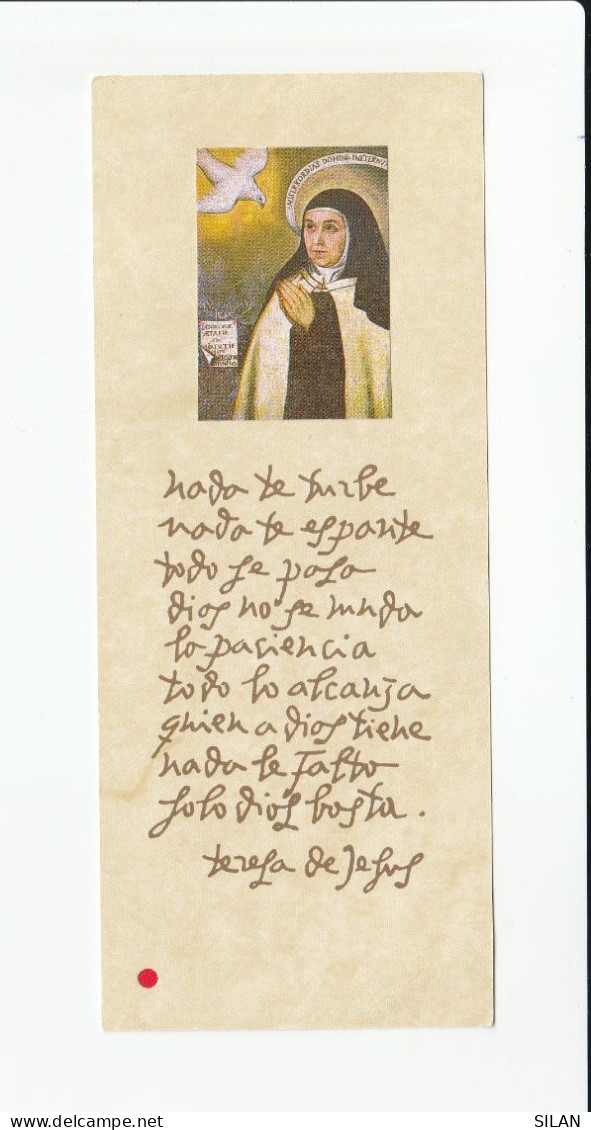 MISERICORDIAS DOMINI INETERNV
nada te turbe
nada te espante
todo se pasa
dios no se muda
la paciencia
todo lo alcanza
quien a dios tiene
nada le falta
solo dios basta.
teresa de Jesus
SILAN